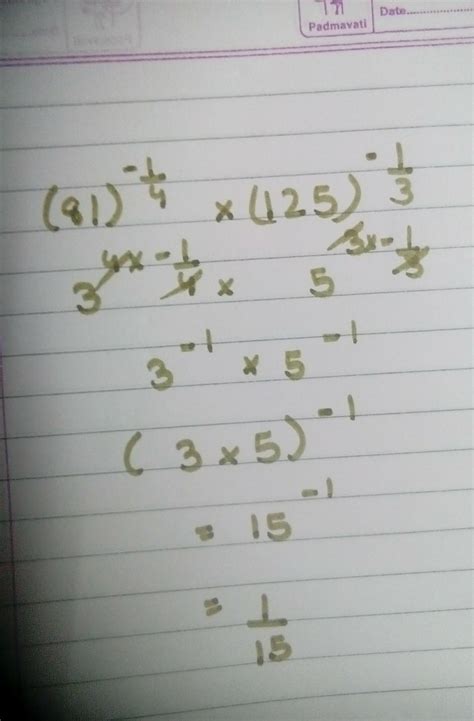 Padmavati
Date
(81)^-1/4 × (125)^-1/3
3^4×-1/4 × 5^3×-1/3
3^-1 × 5^-1
(3×5)^-1
= 15^-1
= 1/15